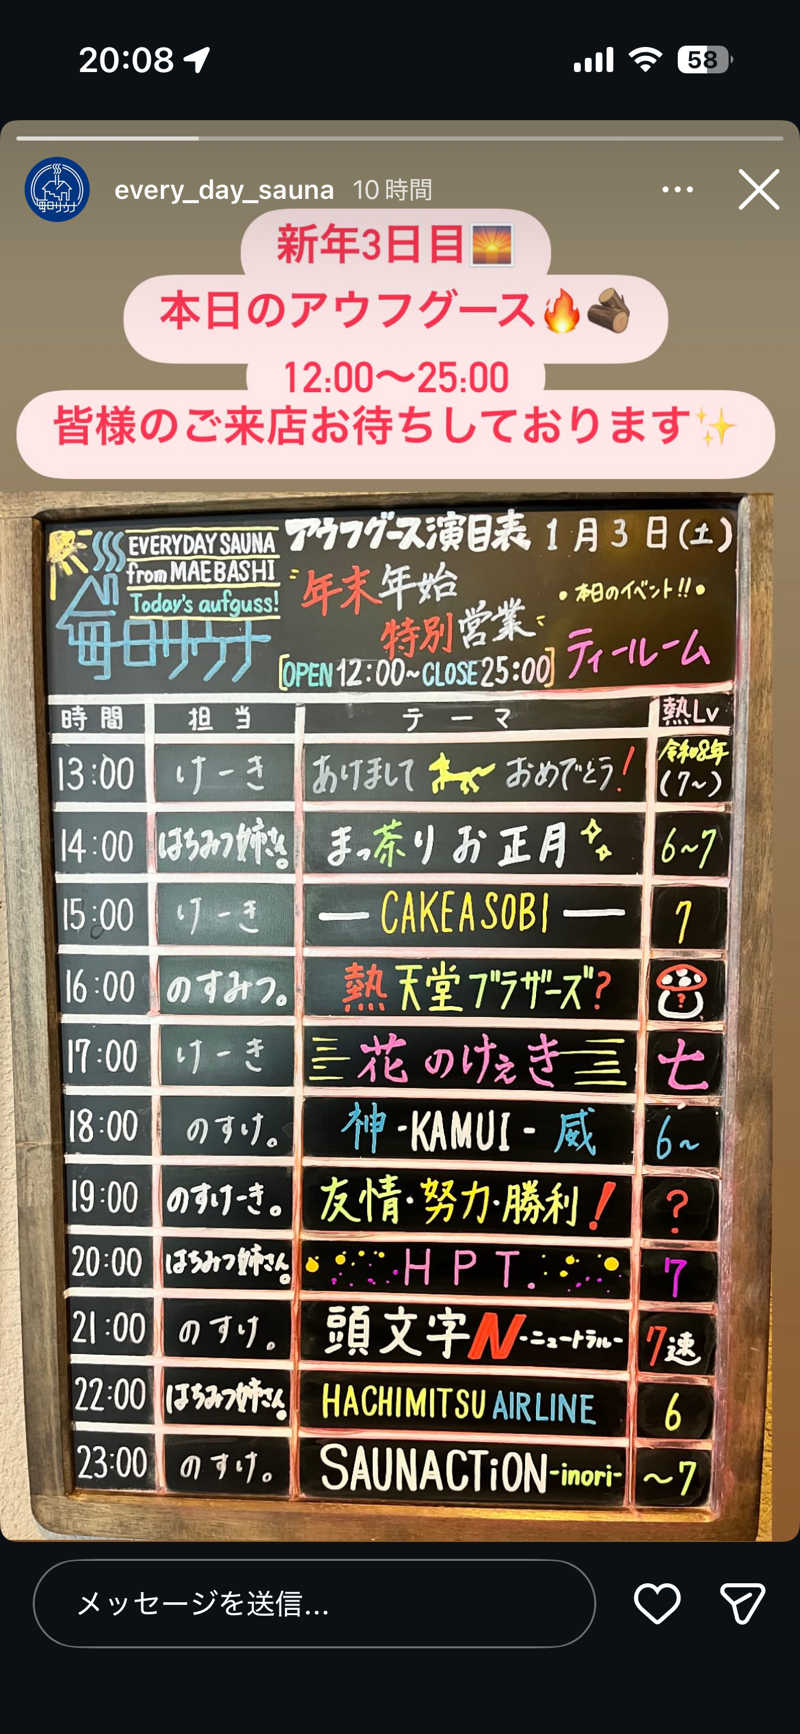 20:08
58
every_day_sauna 10時間
新年3日目
本日のアウフグース
12:00〜25:00
皆様のご来店お待ちしております
EVERYDAY SAUNA
from MAEBASHI
Today's aufguss!
毎日サウナ
アウフグース演目表 1月3日(土)
年末年始
特別営業
OPEN 12:00~CLOSE 25:00
•本日のイベント!!•
ティールーム
時間 担当 テーマ 熱Lv
13:00 けーき あけまして おめでとう! 令和8年(7~)
14:00 はちみつ姉さん。 まっ茶りお正月 6~7
15:00 けーき — CAKEASOBI — 7
16:00 のすみつ。 熱天堂ブラザーズ? ?
17:00 けーき 花のけぇき 七
18:00 のすけ。 神-KAMUI-威 6~
19:00 のすけーき。 友情・努力・勝利! ?
20:00 はちみつ姉さん。 HPT. 7
21:00 のすけ。 頭文字N-ニュートラル- 7速
22:00 はちみつ姉さん。 HACHIMITSU AIRLINE 6
23:00 のすけ。 SAUNACTiON-inori- ~7
メッセージを送信...